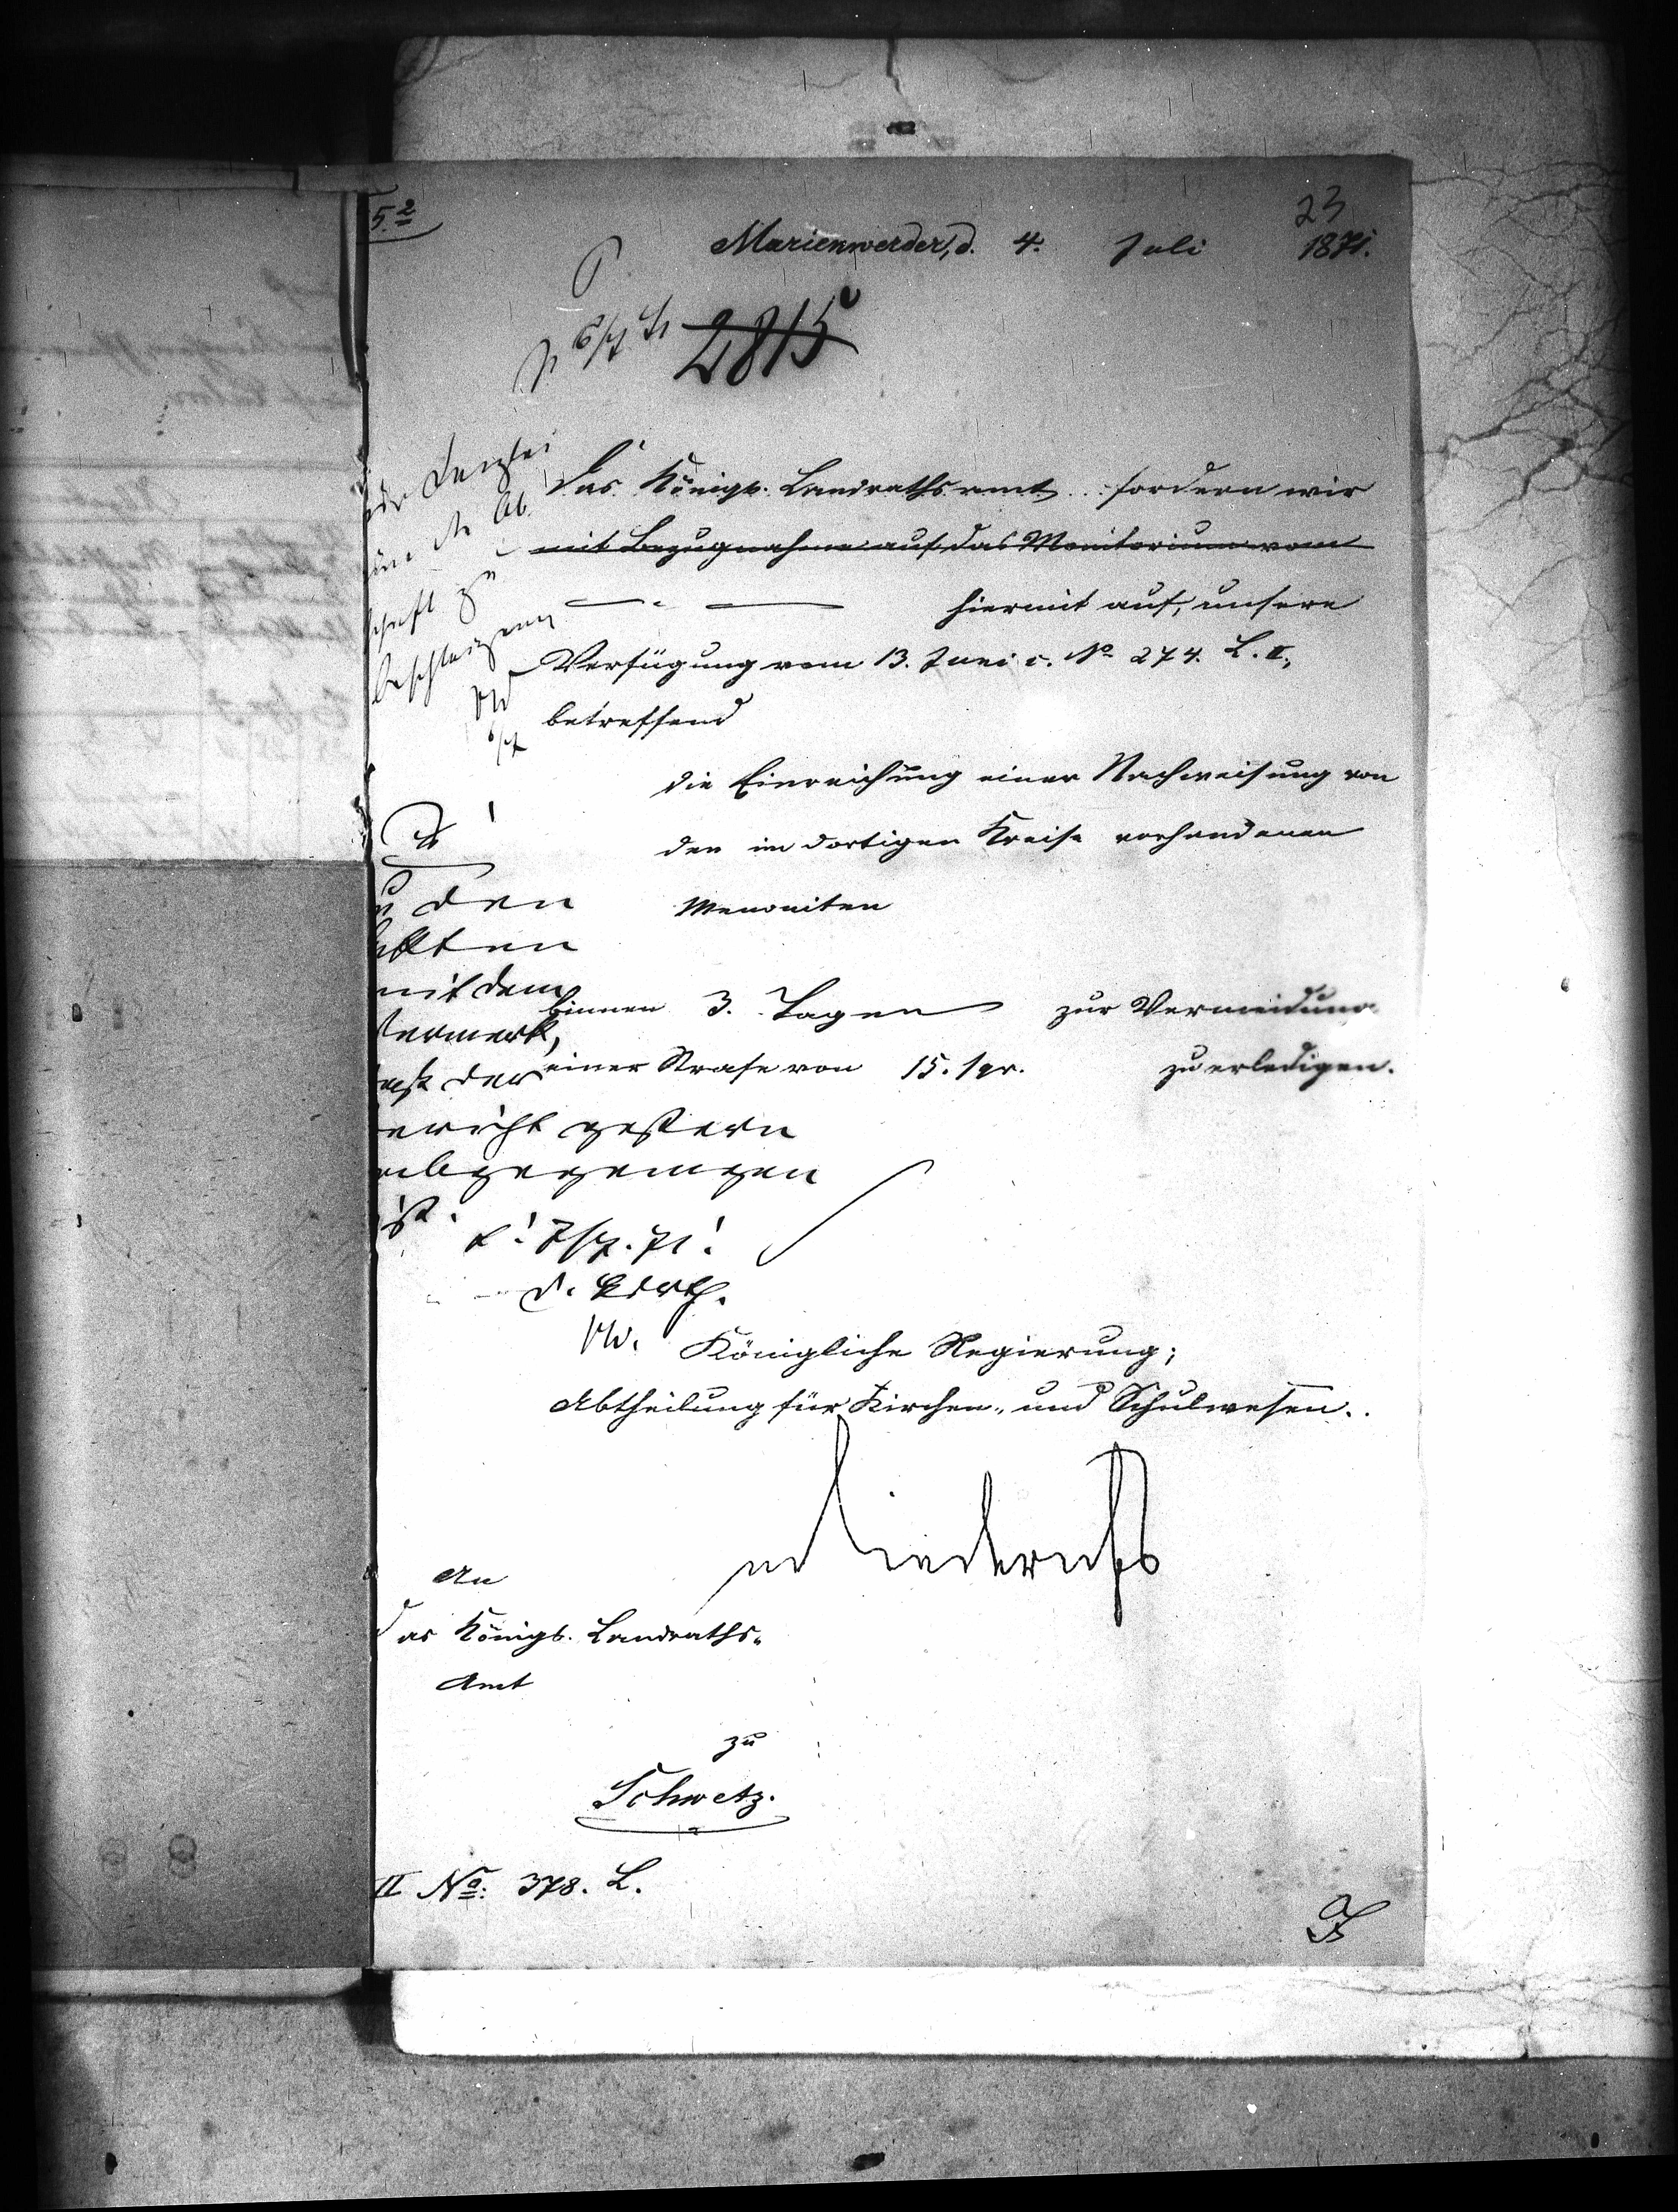 5.2
23
Marienwerder, d. 4. Juli 1871.
2815
Das Königl. Landrathsamt fordern wir
mit Bezugnahme auf das Monitorium vom
hiermit auf, unsere
Verfügung vom 13. Juni c. No 274. L. II.,
betreffend
die Einreichung einer Nachweisung von
den im dortigen Kreise vorhandenen
Menoniten
binnen 3. Tagen zur Vermeidung
einer Strafe von 15. Sgr. zu erledigen.
den
mit dem
Vermerk,
daß der
Bericht gestern
abgegangen
ist.
7/7. 71.
Königliche Regierung;
Abtheilung für Kirchen- und Schulwesen.
An
das Königl. Landraths-
Amt
zu
Schwetz.
II No: 378. L.